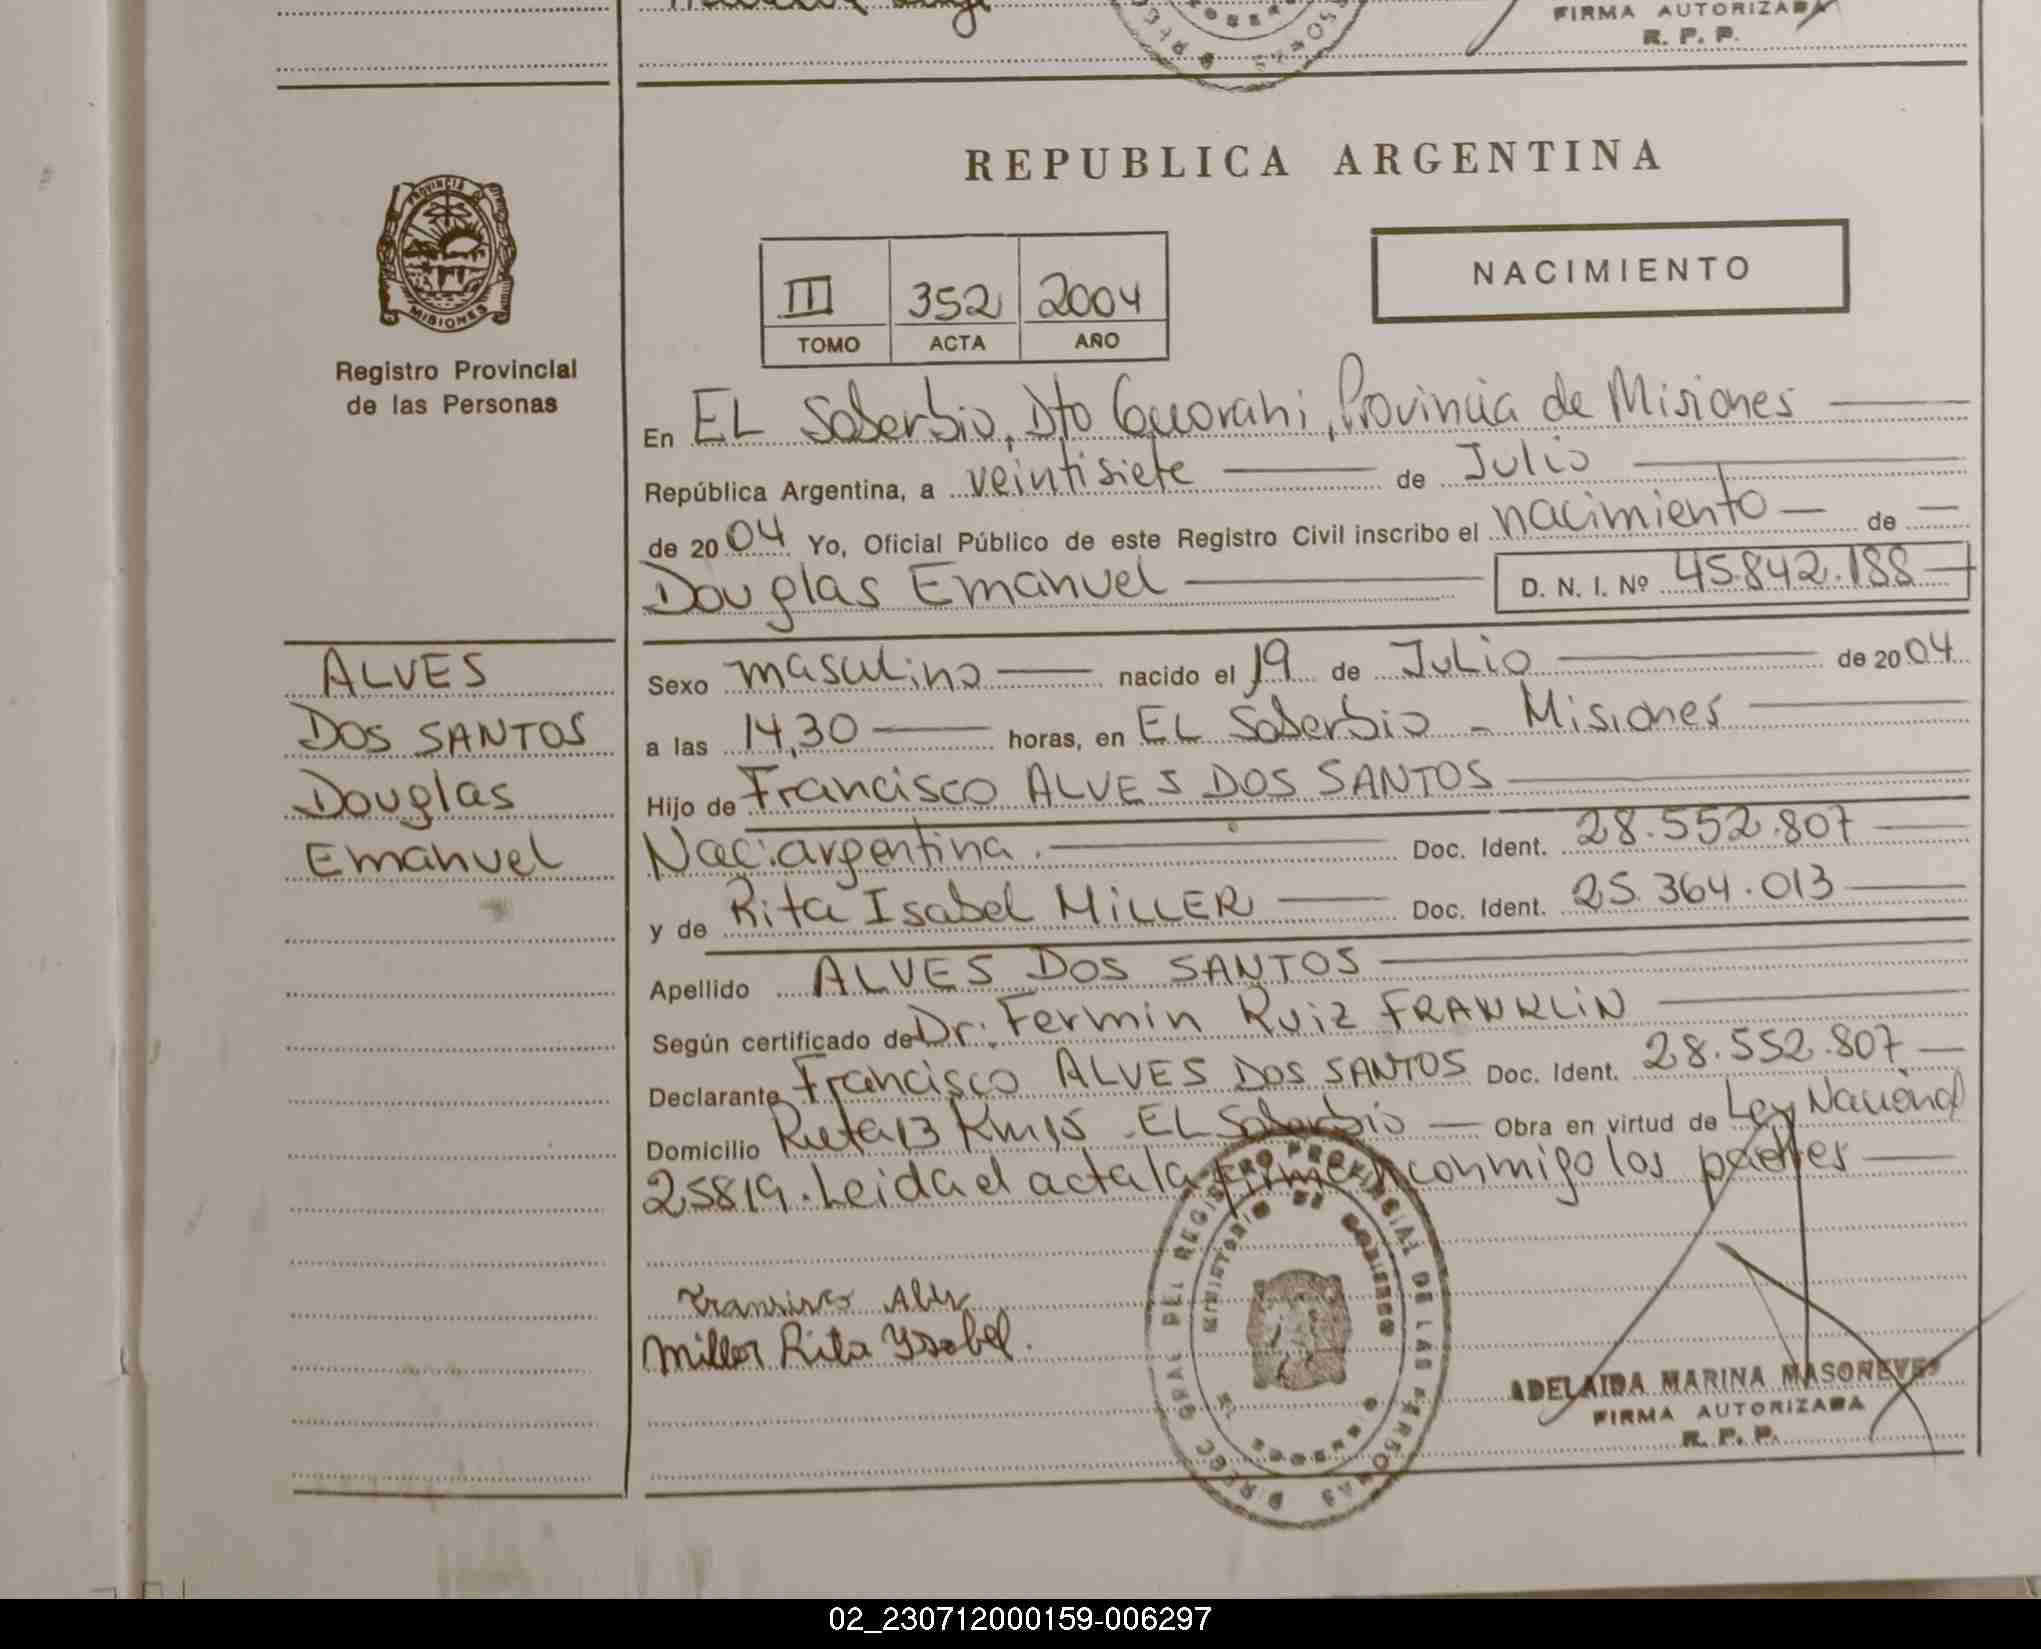 FIRMA AUTORIZADA
R. P. P.
PROVINCIA DE
MISIONES
Registro Provincial
de las Personas
REPUBLICA ARGENTINA
III 352 2004
TOMO ACTA AÑO
NACIMIENTO
En EL Soberbio, Dto Guarani, Provincia de Misiones
República Argentina, a veintisiete de Julio
de 2004 Yo, Oficial Público de este Registro Civil inscribo el nacimiento de
Douglas Emanuel D. N. I. Nº 45.842.188
ALVES
DOS SANTOS
Douglas
Emanuel
Sexo masculino nacido el 19 de Julio de 2004
a las 14,30 horas, en EL Soberbio - Misiones
Hijo de Francisco ALVES DOS SANTOS
Nac. argentina. Doc. Ident. 28.552.807
y de Rita Isabel MILLER Doc. Ident. 25.364.013
Apellido ALVES DOS SANTOS
Según certificado de Dr. Fermin Ruiz FRANKLIN
Declarante Francisco ALVES DOS SANTOS Doc. Ident. 28.552.807
Domicilio Ruta 13 Km 15 - EL Soberbio Obra en virtud de Ley Nacional
25819. Leida el acta la firmen conmigo los padres
Miller Rita Ysabel.
DIREC GRAL DEL REGISTRO PROVINCIAL DE LAS PERSONAS
MINISTERIO DE GOBIERNO
ADELAIDA MARINA MASONEVES
FIRMA AUTORIZADA
R. P. P.
02_230712000159-006297